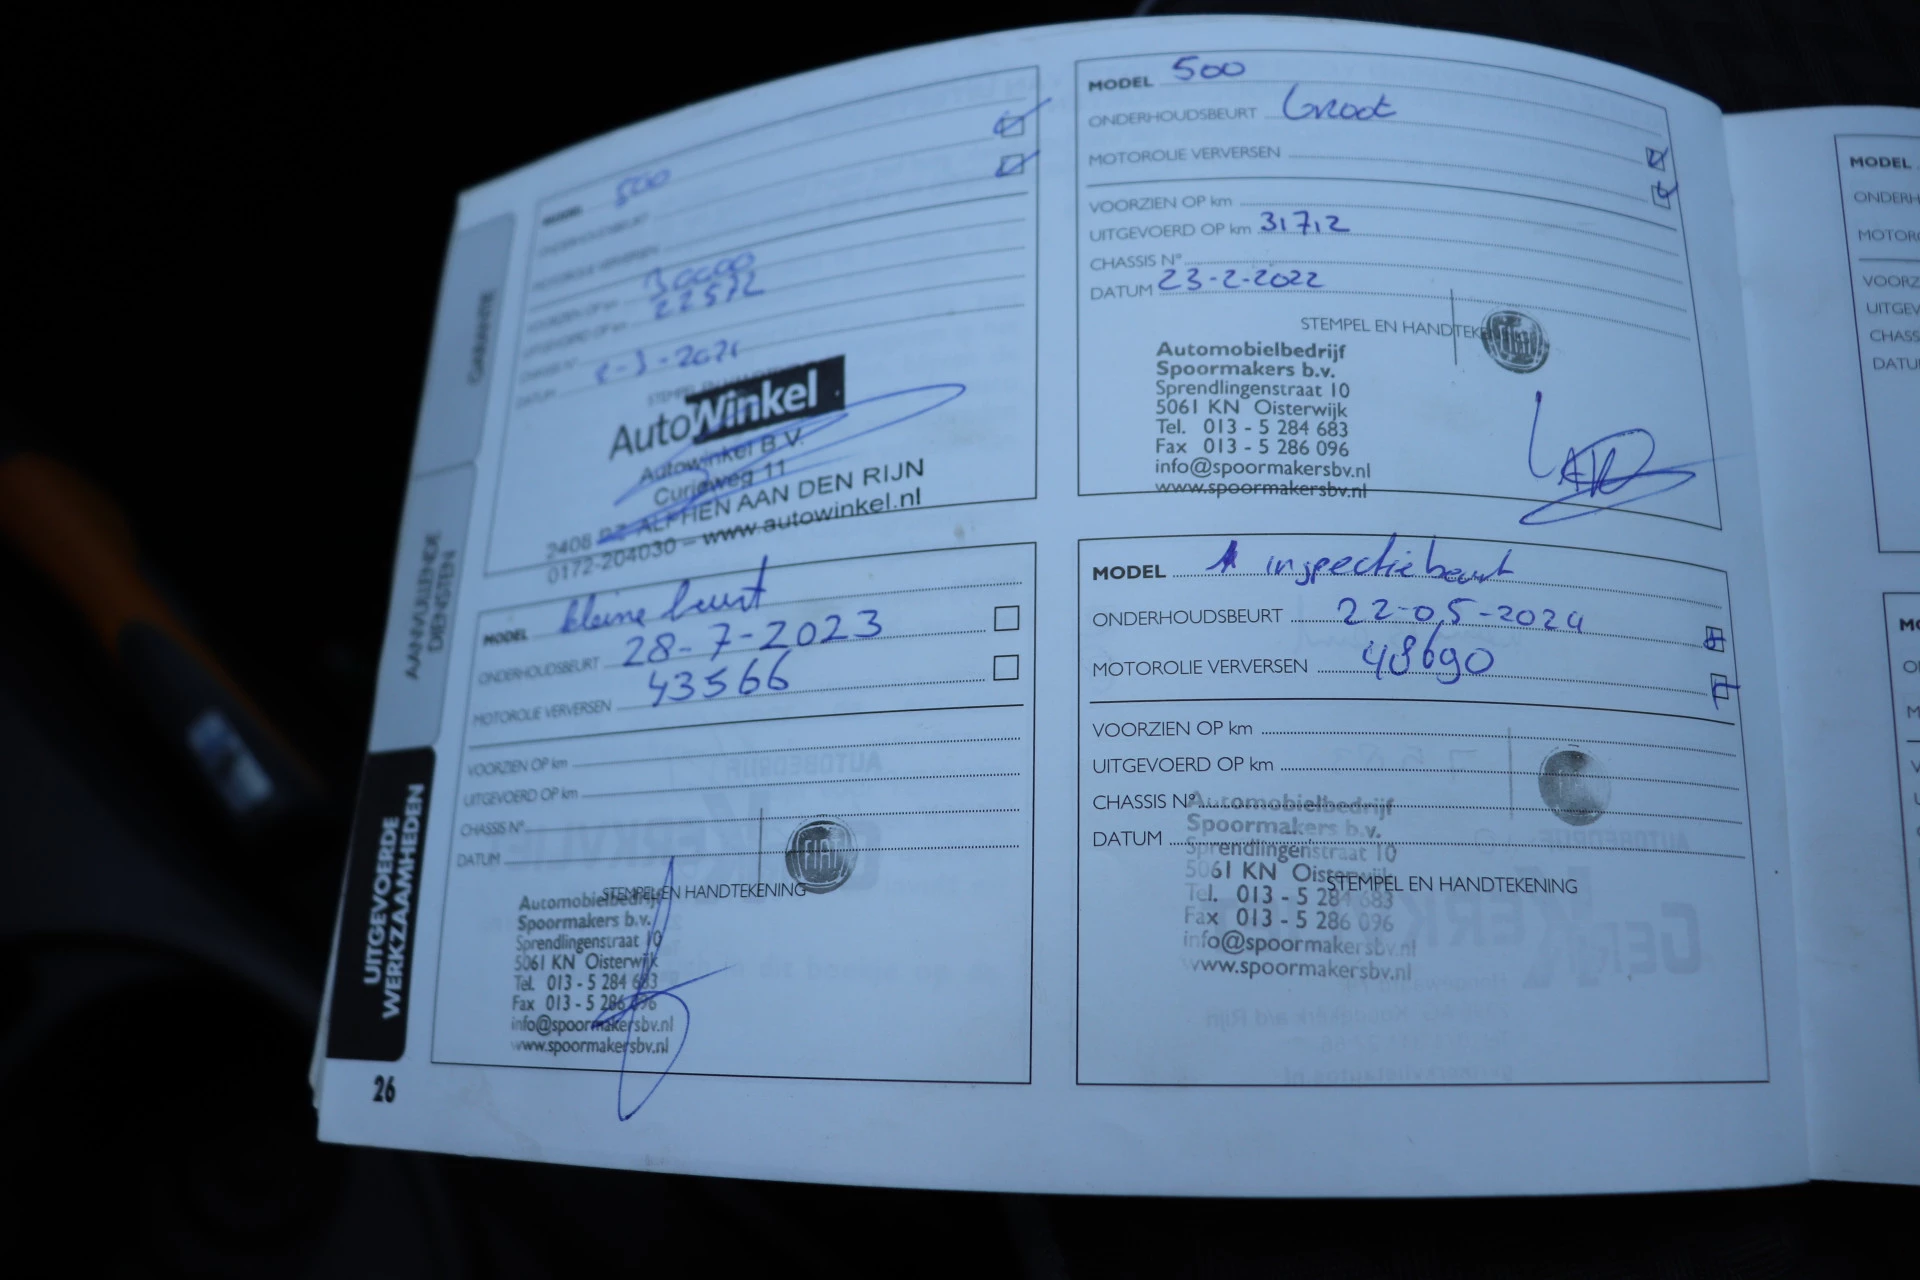 MODEL 500
ONDERHOUDSBEURT
MOTOROLIE VERVERSEN
VOORZIEN OP km 30000
UITGEVOERD OP km 22572
CHASSIS N°
DATUM
AutoWinkel
Autowinkel B.V.
Curieweg 11
2408 ALPHEN AAN DEN RIJN
0172-204030 – www.autowinkel.nl
MODEL 500
ONDERHOUDSBEURT Groot
MOTOROLIE VERVERSEN
VOORZIEN OP km
UITGEVOERD OP km 31712
CHASSIS N°
DATUM 23-2-2022
STEMPEL EN HANDTEK
FIAT
Automobielbedrijf
Spoormakers b.v.
Sprendlingenstraat 10
5061 KN Oisterwijk
Tel. 013 - 5 284 683
Fax 013 - 5 286 096
info@spoormakersbv.nl
www.spoormakersbv.nl
MODEL kleine beurt
ONDERHOUDSBEURT 28-7-2023
MOTOROLIE VERVERSEN 43566
VOORZIEN OP km
UITGEVOERD OP km
CHASSIS N°
DATUM
STEMPEL EN HANDTEKENING
FIAT
Automobielbedrijf
Spoormakers b.v.
Sprendlingenstraat 10
5061 KN Oisterwijk
Tel. 013 - 5 284 683
Fax 013 - 5 286 096
info@spoormakersbv.nl
www.spoormakersbv.nl
MODEL inspectiebeurt
ONDERHOUDSBEURT 22-05-2024
MOTOROLIE VERVERSEN 48690
VOORZIEN OP km
UITGEVOERD OP km
CHASSIS N°
DATUM
STEMPEL EN HANDTEKENING
Automobielbedrijf
Spoormakers b.v.
Sprendlingenstraat 10
5061 KN Oisterwijk
Tel. 013 - 5 284 683
Fax 013 - 5 286 096
info@spoormakersbv.nl
www.spoormakersbv.nl
GARANTIE
AANVULLENDE
DIENSTEN
UITGEVOERDE
WERKZAAMHEDEN
26
MODEL
ONDERH
MOTORO
VOORZ
UITGEV
CHASS
DATU